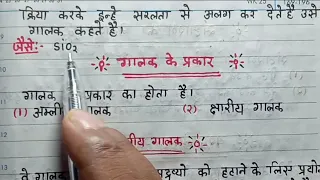 क्रिया करके इन्हे सरलता से अलग कर देते है उसे
गालक कहते है।
जैसे:- SiO₂
गालक के प्रकार
गालक प्रकार का होता है।
(1) अम्लीय गालक (२) क्षारीय गालक
गालक
को हटाने के लिए